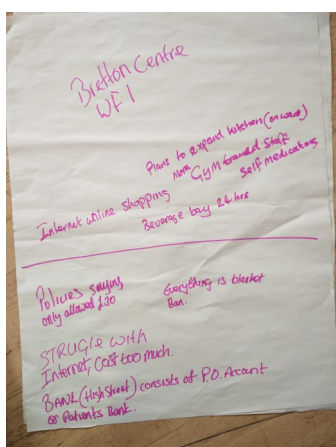 Bretton Centre
WF1
Plans to expand kitchen (on ward)
More Gym trained staff
self medicating
Internet online shopping
Beverage bay 24 hrs
Policies saying
only allowed £20
Everything is blanket
Ban.
STRUGLE with
Internet, Cost too much.
BANK (High Street) consists of P.O. Account
or Patients Bank.